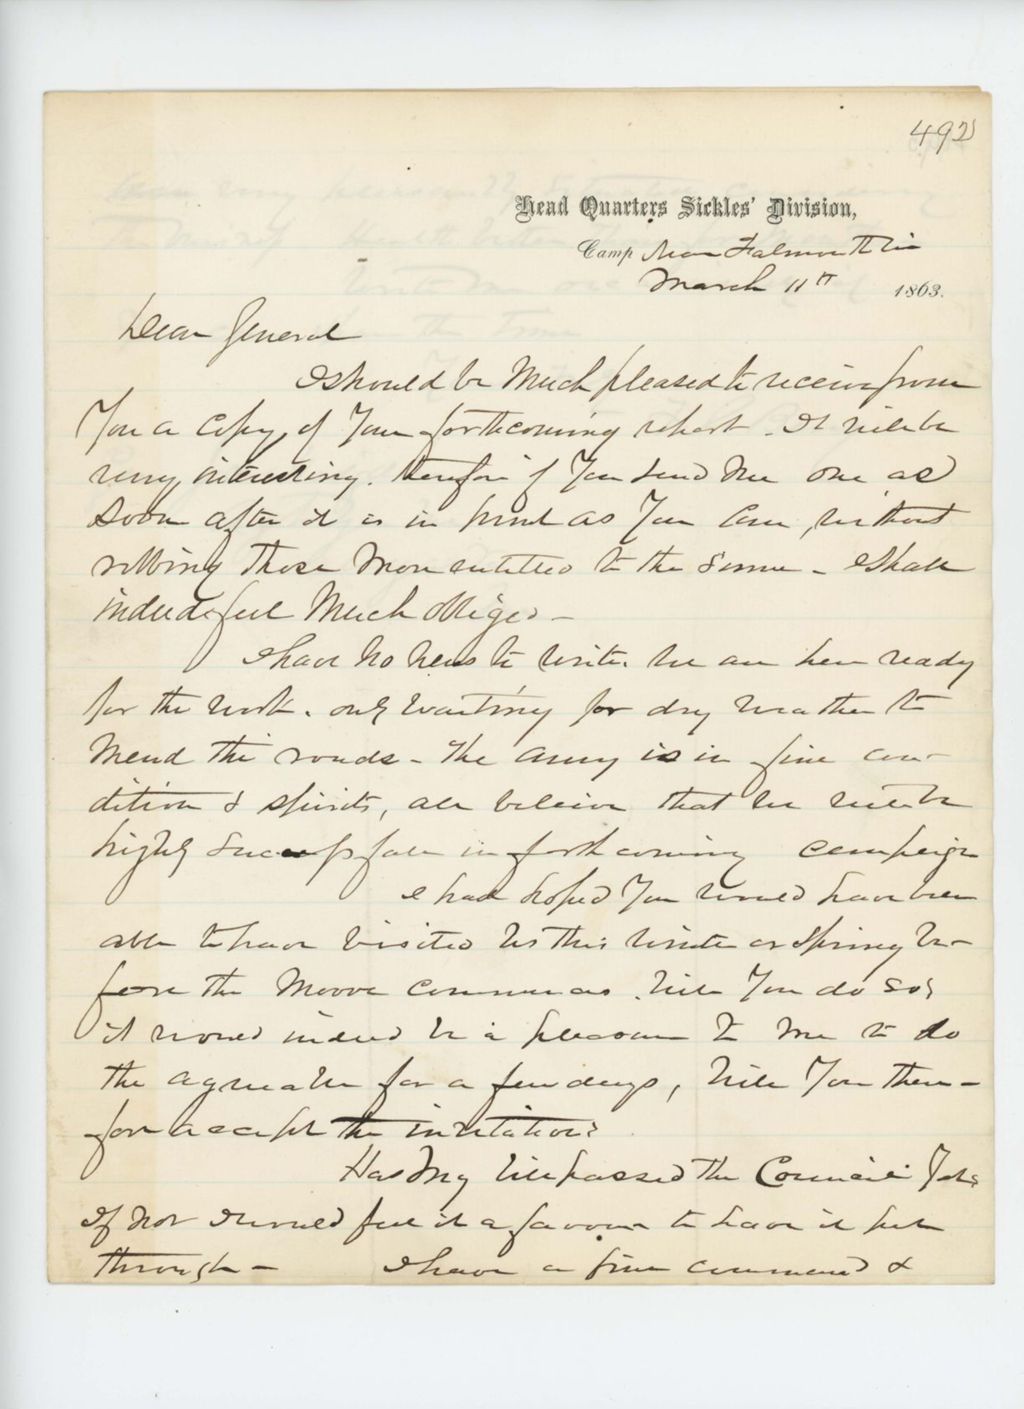 492
Head Quarters Sickles' Division,
Camp Near Falmouth Va
March 11th 1863.
Dear General
I should be Much pleased to receive from
You a Copy of Your forthcoming report. It will be
very interesting. therefore if You send me one as
soon after it is in print as You can, without
robbing those More entitled to the Same - I shall
indeed feel Much obliged -
I have No News to write. We are here ready
for the work. only waiting for dry weather to
Mend the roads - The army is in fine con-
dition & spirits, all believe that we will be
highly Successfull in forthcoming campaign
I had hoped You would have been
able to have visited us this winter or Spring be-
fore the Moove commences. Will You do so?
it would indeed be a pleasure to me to do
the agreeable for a few days, Will You there-
fore accept the invitation?
Has My bill passed the Council Yet?
If not I would feel it a favour to have it put
through - I have a fine command &